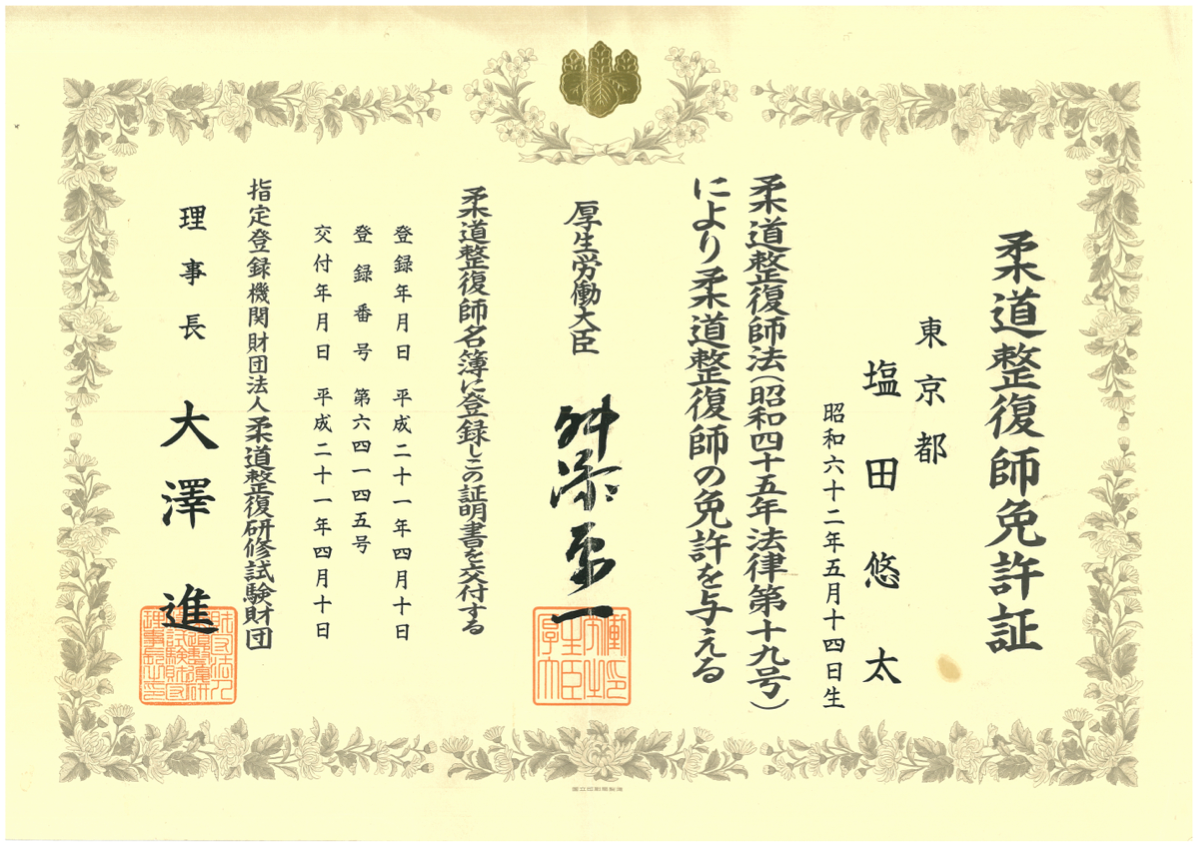 柔道整復師免許証
東京都
塩田悠太
昭和六十二年五月十四日生
柔道整復師法(昭和四十五年法律第十九号)
により柔道整復師の免許を与える
厚生労働大臣 舛添要一
柔道整復師名簿に登録しこの証明書を交付する
登録年月日 平成二十一年四月十日
登録番号 第六四一四五号
交付年月日 平成二十一年四月十日
指定登録機関財団法人柔道整復研修試験財団
理事長 大澤進